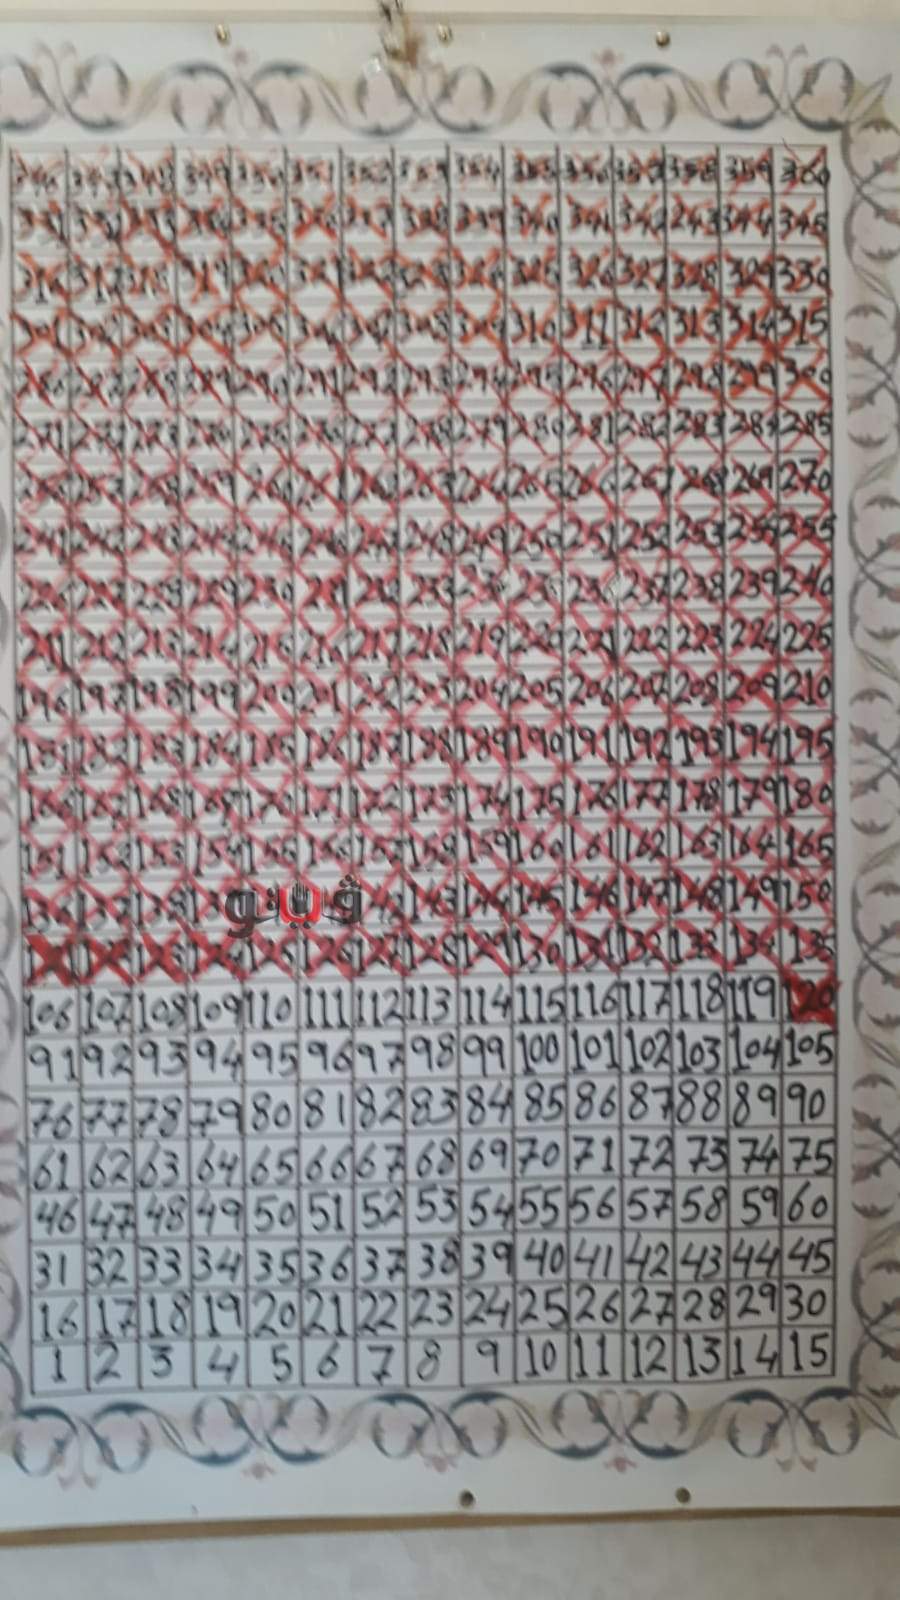 346 347 348 349 350 351 352 353 354 355 356 357 358 359 360
331 332 333 334 335 336 337 338 339 340 341 342 343 344 345
316 317 318 319 320 321 322 323 324 325 326 327 328 329 330
301 302 303 304 305 306 307 308 309 310 311 312 313 314 315
286 287 288 289 290 291 292 293 294 295 296 297 298 299 300
271 272 273 274 275 276 277 278 279 280 281 282 283 284 285
256 257 258 259 260 261 262 263 264 265 266 267 268 269 270
241 242 243 244 245 246 247 248 249 250 251 252 253 254 255
226 227 228 229 230 231 232 233 234 235 236 237 238 239 240
211 212 213 214 215 216 217 218 219 220 221 222 223 224 225
196 197 198 199 200 201 202 203 204 205 206 207 208 209 210
181 182 183 184 185 186 187 188 189 190 191 192 193 194 195
166 167 168 169 170 171 172 173 174 175 176 177 178 179 180
151 152 153 154 155 156 157 158 159 160 161 162 163 164 165
136 137 138 143 144 145 146 147 148 149 150
ڤيتو
128 129 130 131 132 133 134 135
106 107 108 109 110 111 112 113 114 115 116 117 118 119 120
91 92 93 94 95 96 97 98 99 100 101 102 103 104 105
76 77 78 79 80 81 82 83 84 85 86 87 88 89 90
61 62 63 64 65 66 67 68 69 70 71 72 73 74 75
46 47 48 49 50 51 52 53 54 55 56 57 58 59 60
31 32 33 34 35 36 37 38 39 40 41 42 43 44 45
16 17 18 19 20 21 22 23 24 25 26 27 28 29 30
1 2 3 4 5 6 7 8 9 10 11 12 13 14 15